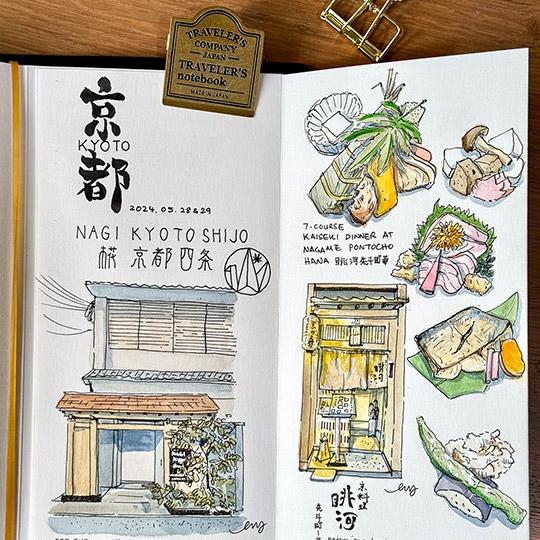 TRAVELER'S
COMPANY
JAPAN
TRAVELER'S
notebook
MADE IN JAPAN
京
KYOTO
都
2024.05.28&29
NAGI KYOTO SHIJO
京都四条
7-COURSE
KAISEKI DINNER AT
NAGAME PONTOCHO
HANA 眺河先斗町華
京料理
眺河